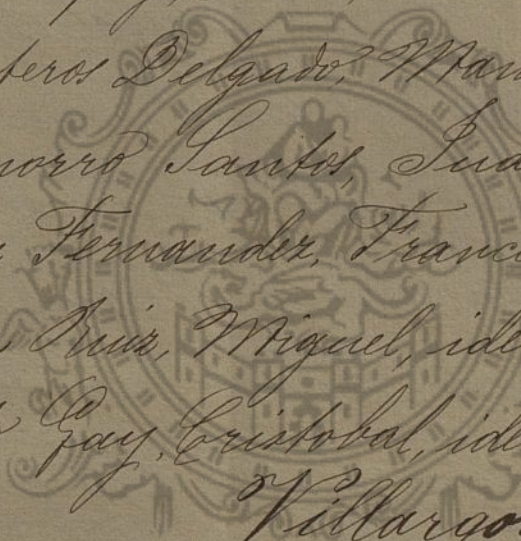 teros Delgado, Man
morro Santos, Jua
Fernandez, Franci
Ruiz, Miguel, ide
Gay, Cristobal, ide
Villargo